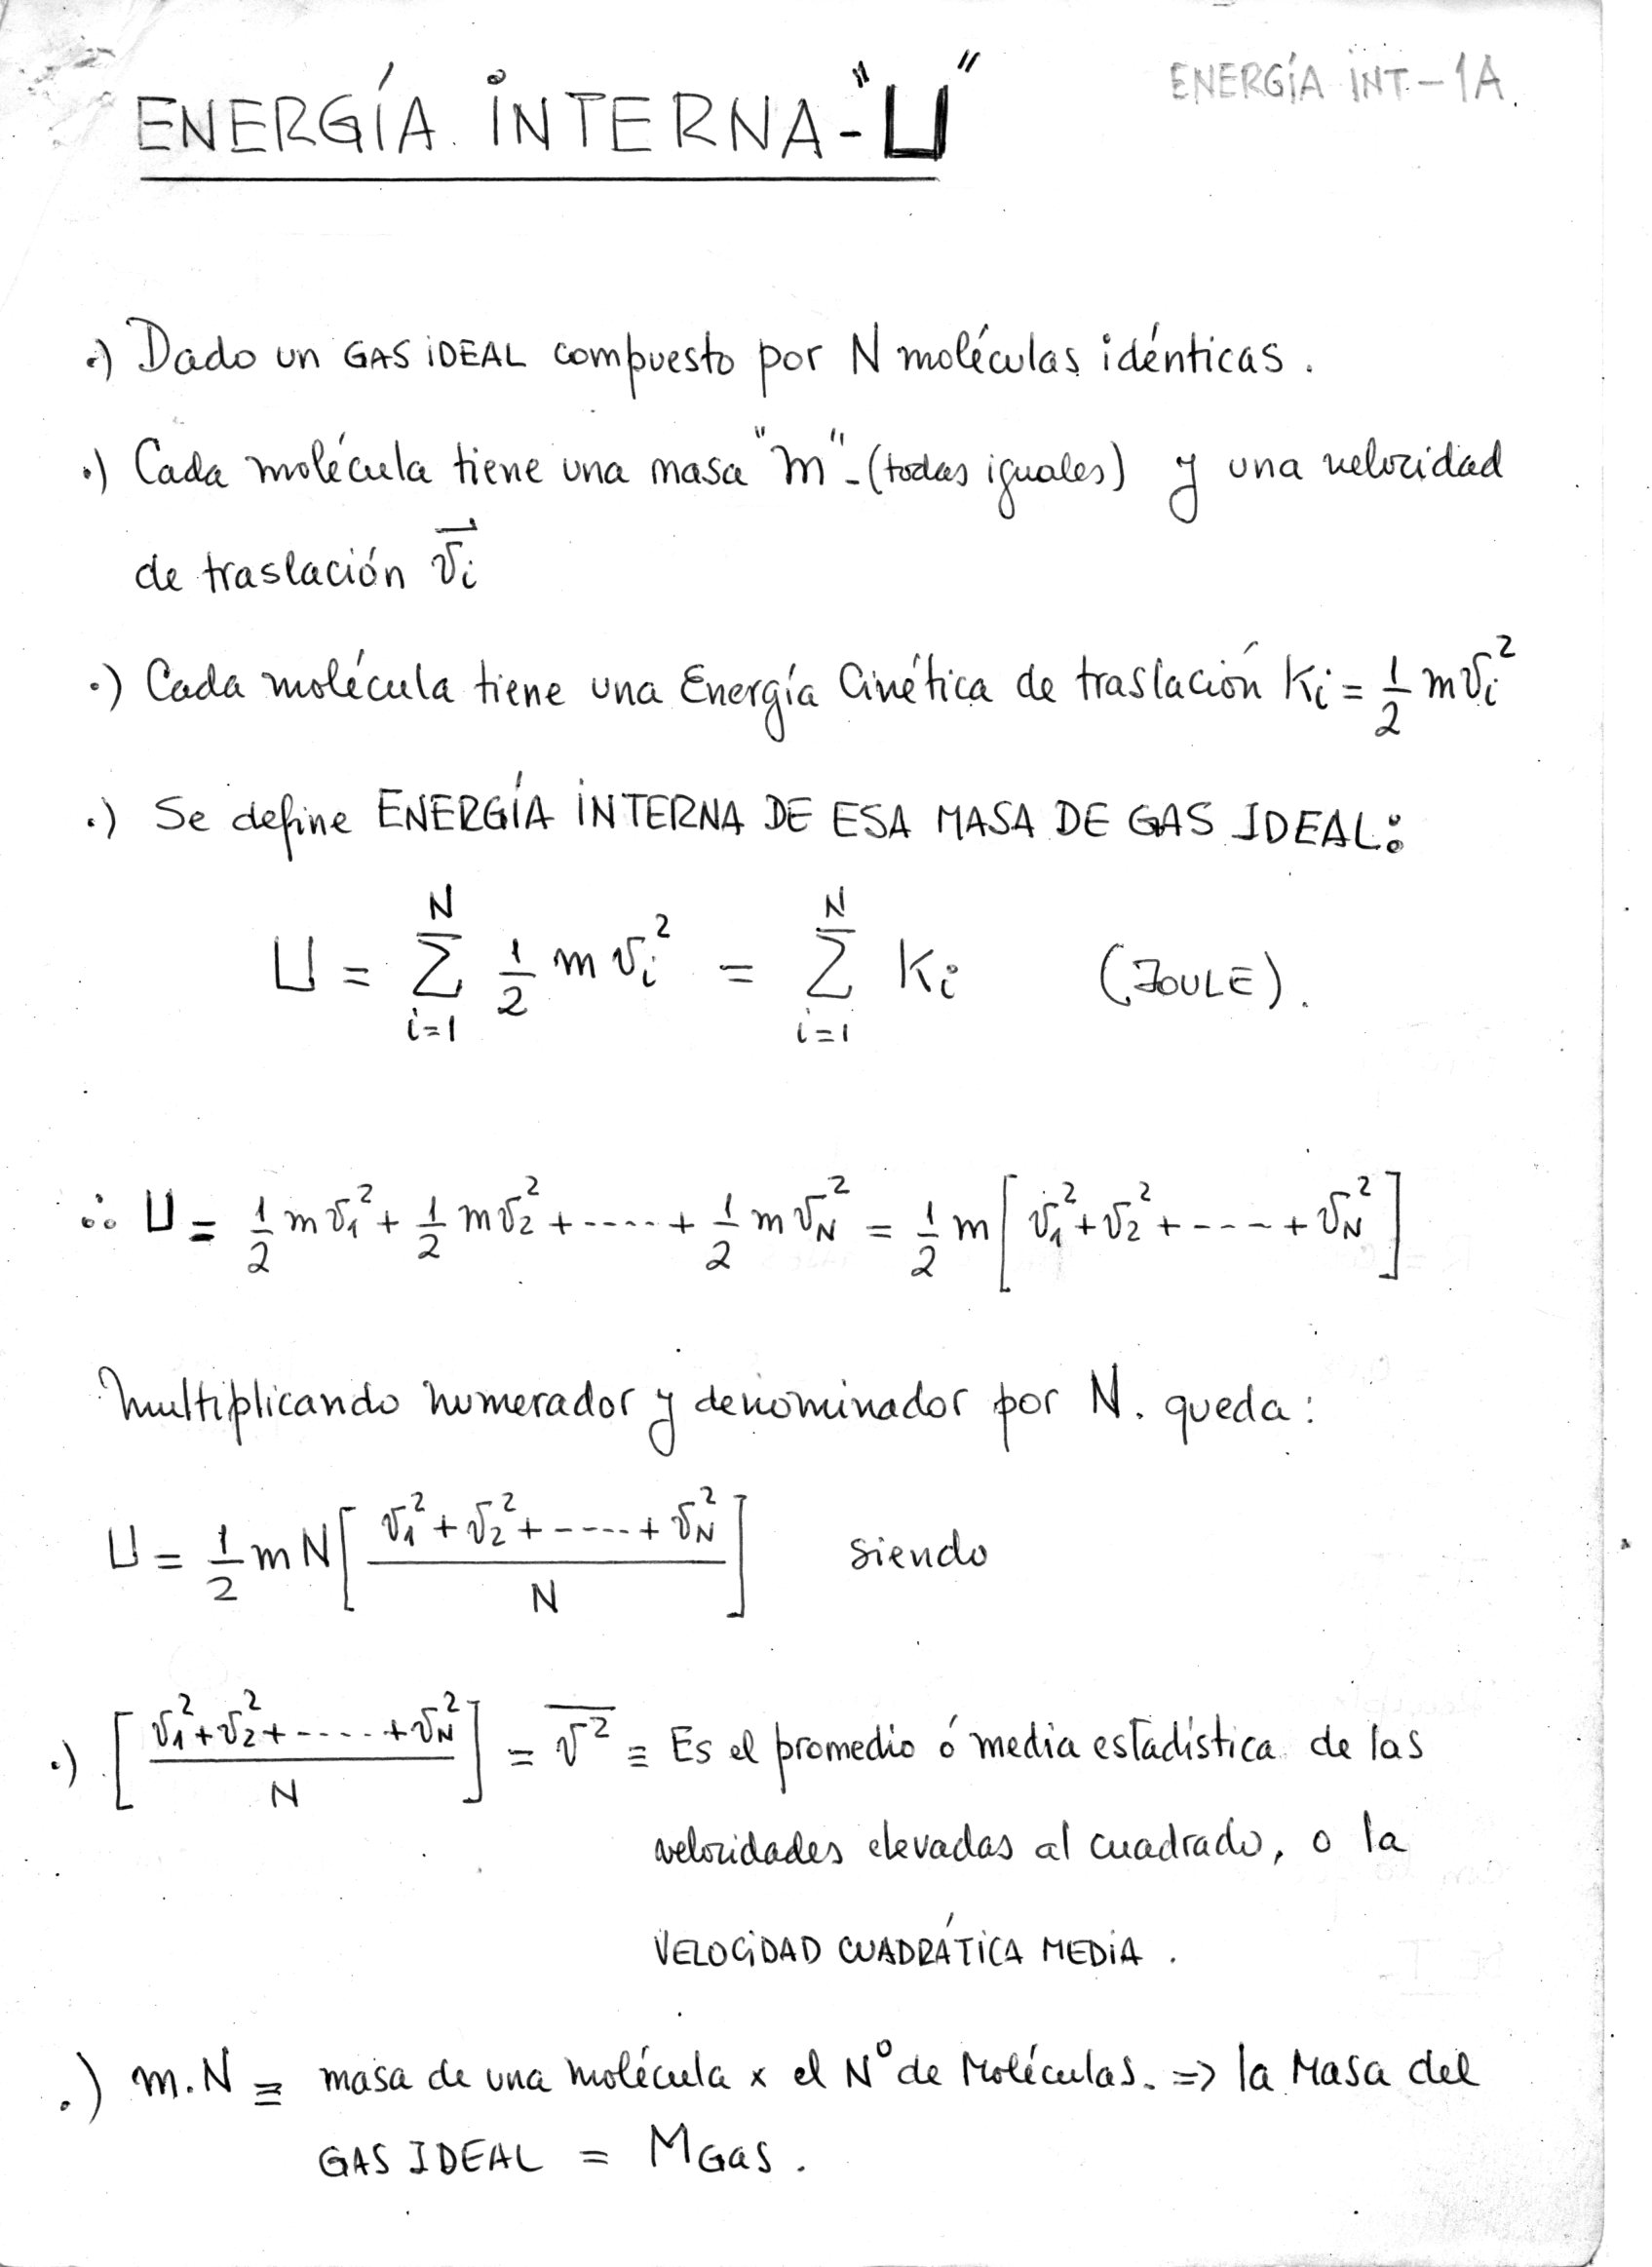 ENERGÍA INTERNA-"U"
ENERGÍA INT.-1A.
.) Dado un GAS IDEAL compuesto por N moléculas idénticas.
.) Cada molécula tiene una masa "m"-(todas iguales) y una velocidad
de traslación v⃗i
.) Cada molécula tiene una Energía Cinética de traslación Ki = 1/2 m vi²
.) Se define ENERGÍA INTERNA DE ESA MASA DE GAS IDEAL:
U = ∑_{i=1}^{N} 1/2 m vi² = ∑_{i=1}^{N} Ki (JOULE).
∴ U = 1/2 m v1² + 1/2 m v2² + ----- + 1/2 m vN² = 1/2 m [ v1² + v2² + ---- + vN² ]
Multiplicando numerador y denominador por N. queda:
U = 1/2 m N [ (v1² + v2² + ----- + vN²) / N ] siendo
.) [ (v1² + v2² + ----- + vN²) / N ] = v̅²̅ ≡ Es el promedio ó media estadística de las
velocidades elevadas al cuadrado, o la
VELOCIDAD CUADRÁTICA MEDIA.
.) m.N ≡ masa de una molécula x el Nº de Moléculas. => la Masa del
GAS IDEAL = MGas.